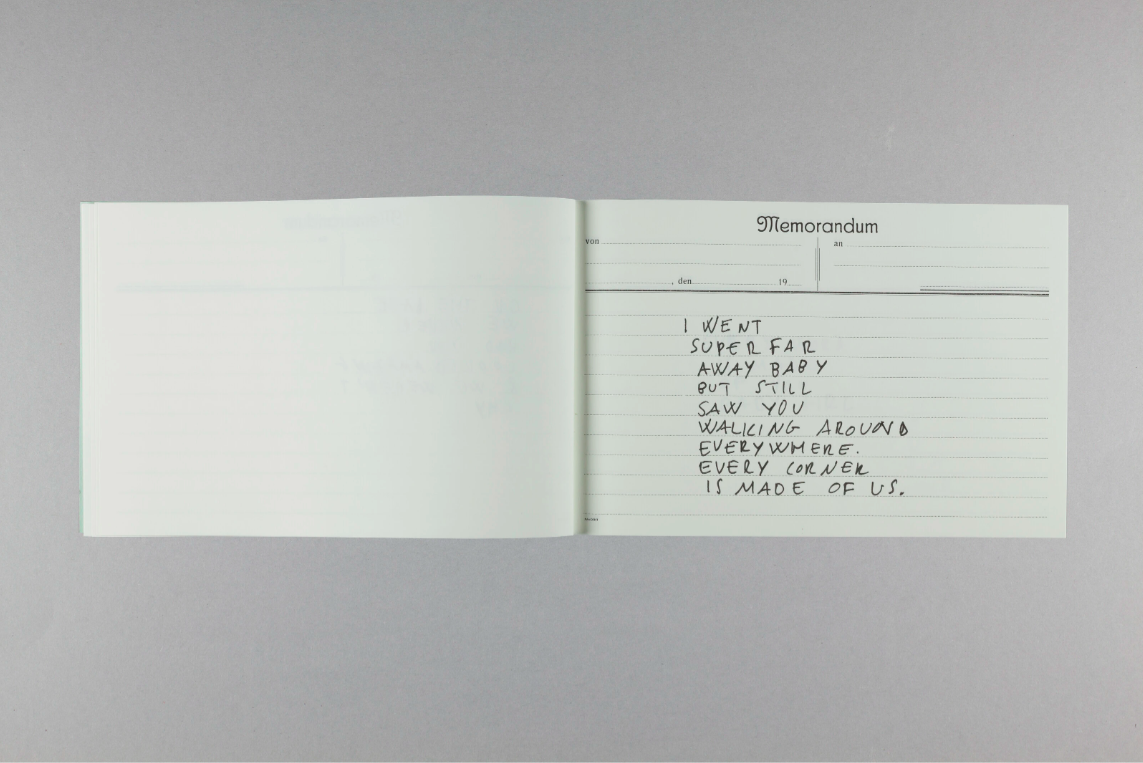 Memorandum
von
an
, den 19
I WENT
SUPER FAR
AWAY BABY
BUT STILL
SAW YOU
WALKING AROUND
EVERYWHERE.
EVERY CORNER
IS MADE OF US.